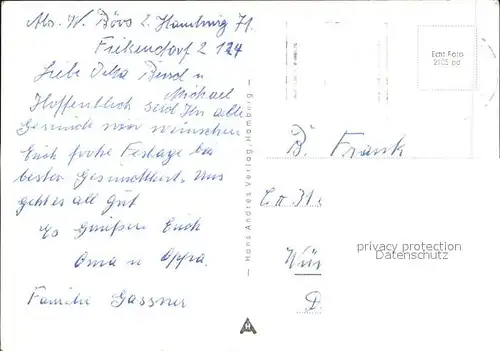 Abs. W. Börs 2 Hamburg 71.
Fritzendorf 2 124
Liebe Bernd u
Michael
Hoffentlich seid Ihr alle
Gesund wir wünschen
Euch frohe Festage bei
bester Gesundheit. Uns
geht es all Gut
Es Grüßen Euch
Oma u Oppa.
Familie Gassner
- Hans Andres Verlag, Hamburg -
Echt Foto
2105 pd
B. Frank
privacy protection
Datenschutz